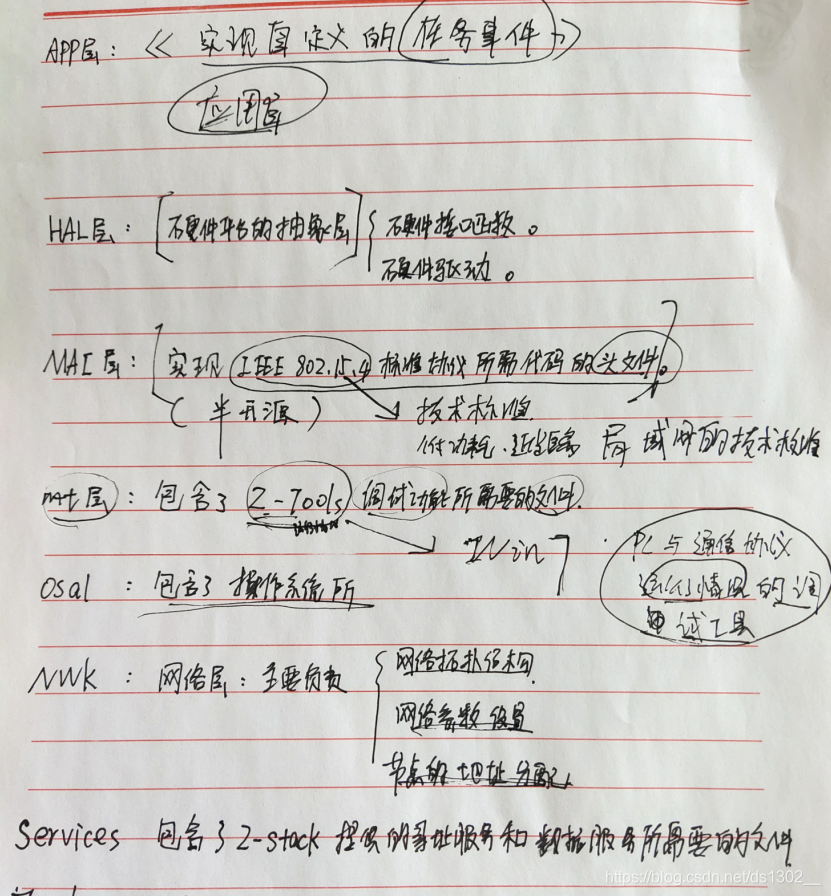 APP层：《 实现自定义的 任务事件 》
应用层
HAL层：[硬件平台的抽象层] { 硬件接口函数。
硬件驱动。
MAC层：[ 实现 IEEE 802.15.4 标准协议所需代码的头文件。]
(半开源) 技术标准
低功耗、近距离 局域网的技术标准
mt层：包含了 Z-Tools 调试功能所需要的文件.
Win7
PC与通信协议
运行情况的调
试工具
Osal：包含了操作系统所
NWK：网络层：主要负责 { 网络拓扑结构.
网络参数设置
节点的地址分配
Services 包含了Z-stack 提供的寻址服务和数据服务所需要的文件
https://blog.csdn.net/ds1302__